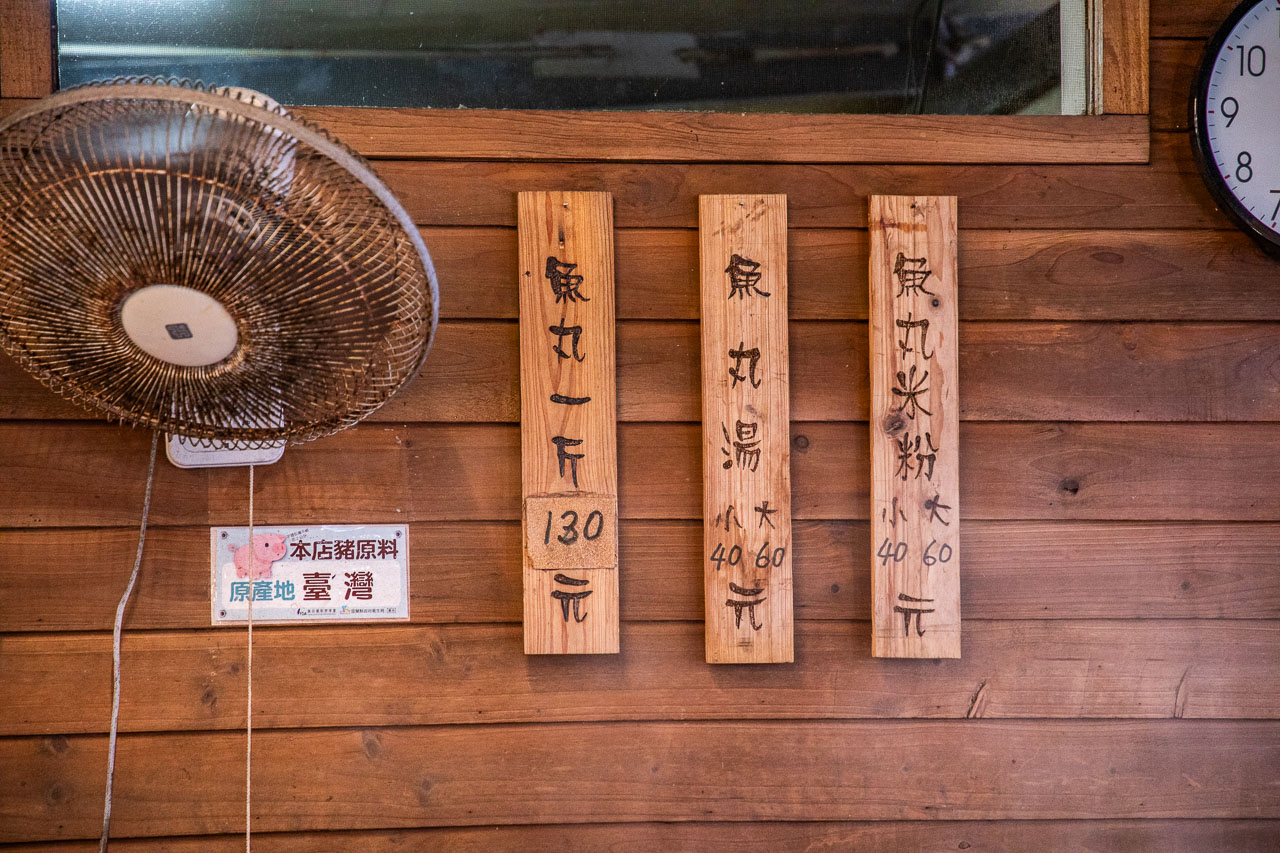 魚丸一斤
130
元
魚丸湯
小 大
40 60
元
魚丸米粉
小 大
40 60
元
本店豬原料
原產地 臺灣
10
9
8
7